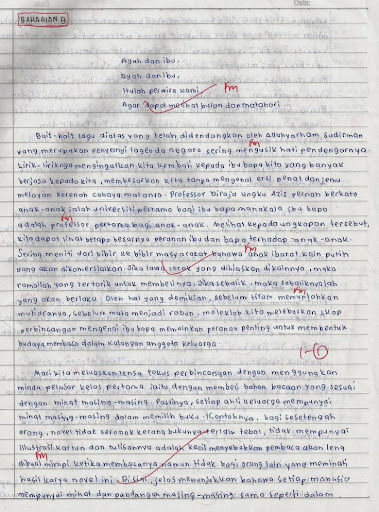 BAHAGIAN B
Ayah dan ibu,
Ayah dan ibu,
Itulah perwira kami,
Agar dapat melihat bulan dan matahari...
Bait-bait lagu diatas yang telah didendangkan oleh Allahyarham Sudirman
yang merupakan penyanyi lagenda negara sering mengusik hati pendengarnya.
Lirik-liriknya mengingatkan kita kembali kepada ibu bapa kita yang banyak
berjasa kepada kita, membesarkan kita tanpa mengenal erti penat dan jemu
melayan kerenah cahaya matanya. Professor Diraja Ungku Aziz pernah berkata
anak-anak ialah universiti pertama bagi ibu bapa manakala ibu bapa
adalah professor pertama bagi anak-anak. Melihat kepada ungkapan tersebut,
kita dapat lihat betapa besarnya peranan ibu dan bapa terhadap anak-anak.
Sering meniti dari bibir ke bibir masyarakat bahawa anak ibarat kain putih
yang akan dikomersialkan. Jika lawa corak yang dihiaskan dikainnya, maka
ramailah yang tertarik untuk membelinya. Jika sebaik, maka sebaliknyalah
yang akan berlaku. Oleh hal yang demikian, sebelum tiram memuntahkan
mutiaranya, sebelum mata menjadi rabun, moleklah kita melebarkan skop
perbincangan mengenai ibu bapa memainkan peranan penting untuk membentuk
budaya membaca dalam kalangan anggota keluarga.
Mari kita meluaskan lensa fokus perbincangan dengan menggunakan
minda pelajar kelas pertama iaitu dengan memberi bahan bacaan yang sesuai
dengan minat masing-masing. Pastinya, setiap ahli keluarga mempunyai
minat masing-masing dalam memilih buku. Contohnya, bagi sesetengah
orang, novel tidak seronok kerana bukunya terlalu tebal, tidak mempunyai
illustrasi kartun dan tulisannya adalah kecil menyebabkan pembaca akan leng
dibuai mimpi ketika membacanya namun tidak bagi orang lain yang meminati
hasil karya novel ini. Disini, jelas menunjukkan bahawa setiap manusia
mempunyai minat dan pandangan masing-masing sama seperti dalam